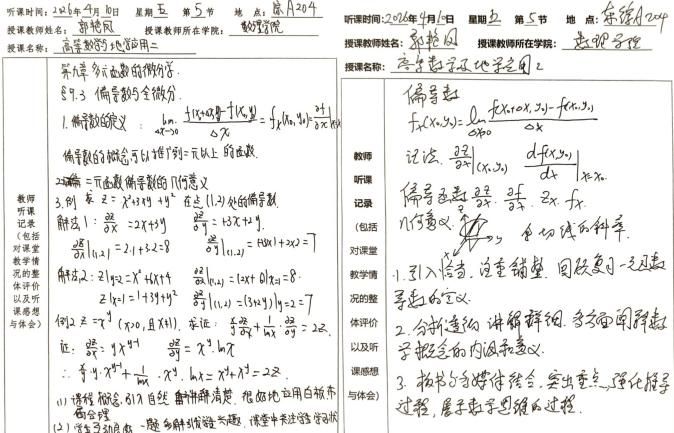 听课时间:2026年4月10日 星期五 第5节 地点:综A204
授课教师姓名:郭艳凤 授课教师所在学院:数理学院
授课课程名称:高等数学与地学应用二
教师
听课
记录
(包括
对课堂
教学情
况的整
体评价
以及听
课感想
与体会)
第九章 多元函数的微分学.
§9.3 偏导数与全微分.
1. 偏导数的定义: lim Δx→0 f(x0+Δx,y0)-f(x0,y0) / Δx = fx(x0,y0) = ∂f/∂x |
偏导数的概念可以推广到三元以上的函数.
2. 二元函数偏导数的几何意义
3. 例 求 z=x²+3xy+y² 在点(1,2)处的偏导数.
解法1: ∂z/∂x = 2x+3y ∂z/∂y = +3x+2y.
∂z/∂x|(1,2) = 2·1+3·2=8 ∂z/∂y|(1,2) = +2×2=7
解法2: z|y=2 = x²+6x+4 ∂z/∂x|(1,2) = (2x+6)|x=1=8.
z|x=1 = 1+3y+y² ∂z/∂y|(1,2) = (3+2y)|y=2=7
例2 z=x^y (x>0, 且x≠1). 求证: x/y ∂z/∂x + 1/lnx · ∂z/∂y = 2z.
证: ∂z/∂x = yx^(y-1) ∂z/∂y = x^y·lnx
∴ x/y·y·x^(y-1) + 1/lnx · x^y·lnx = x^y+x^y = 2z.
(1) 课程概念引入自然 讲解清楚. 很好地应用白板布
局合理
(2) 学生 一题多解 兴趣. 课堂中关注学生学习状
听课时间:2026年4月10日 星期五 第5节 地点:综A204
授课教师姓名:郭艳凤 授课教师所在学院:数理学院
授课课程名称:高等数学及地学应用2
教师
听课
记录
(包括
对课堂
教学情
况的整
体评价
以及听
课感想
与体会)
偏导数
fx(x0,y0) = lim Δx→0 f(x0+Δx,y0)-f(x0,y0) / Δx
记法. ∂z/∂x|(x0,y0) df(x,y0)/dx | x=x0.
偏导函数 ∂z/∂x. ∂f/∂x. zx. fx.
几何意义. z x y 切线的斜率.
1. 引入恰当,注重铺垫. 回顾复习一元函数
导数的定义.
2. 分析透彻 讲解详细. 多方面阐释数
学概念的内涵和意义.
3. 板书与多媒体结合,突出重点,强化推导
过程,展示数学思维的过程.